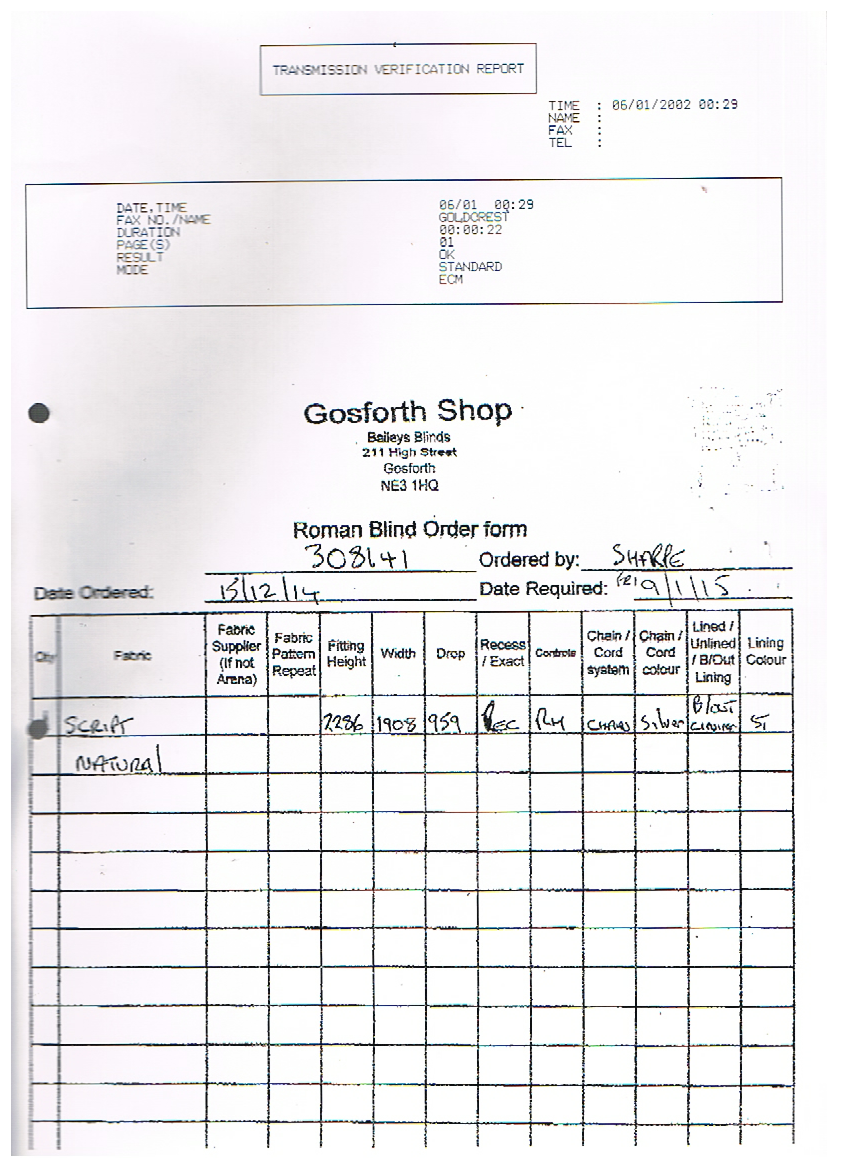 TRANSMISSION VERIFICATION REPORT
TIME : 06/01/2002 00:29
NAME :
FAX :
TEL :
DATE,TIME 06/01 00:29
FAX NO./NAME GOLDCREST
DURATION 00:00:22
PAGE(S) 01
RESULT OK
MODE STANDARD
ECM
Gosforth Shop
Baileys Blinds
211 High Street
Gosforth
NE3 1HQ
Roman Blind Order form
308141 Ordered by: SHARPE
Date Ordered: 15/12/14 Date Required: FRI 9/1/15
Qty Fabric Fabric Supplier (If not Arena) Fabric Pattern Repeat Fitting Height Width Drop Recess / Exact Controls Chain / Cord system Chain / Cord colour Lined / Unlined / B/Out Lining Lining Colour
SCRIPT 2286 1908 959 REC RH CHAIN Silver B/OUT LINING ST
NATURAL